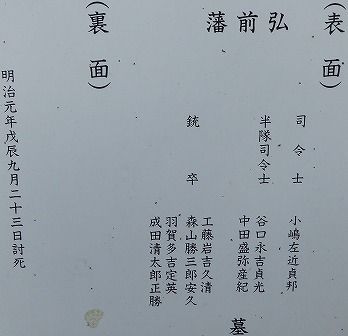 (表面)
弘前藩
司令士　小嶋左近貞邦
半隊司令士　谷口永吉貞光
中田盛弥産紀
銃卒　工藤岩吉久清
森山勝三郎安久
羽賀多吉定英
成田清太郎正勝
墓
(裏面)
明治元年戊辰九月二十三日討死